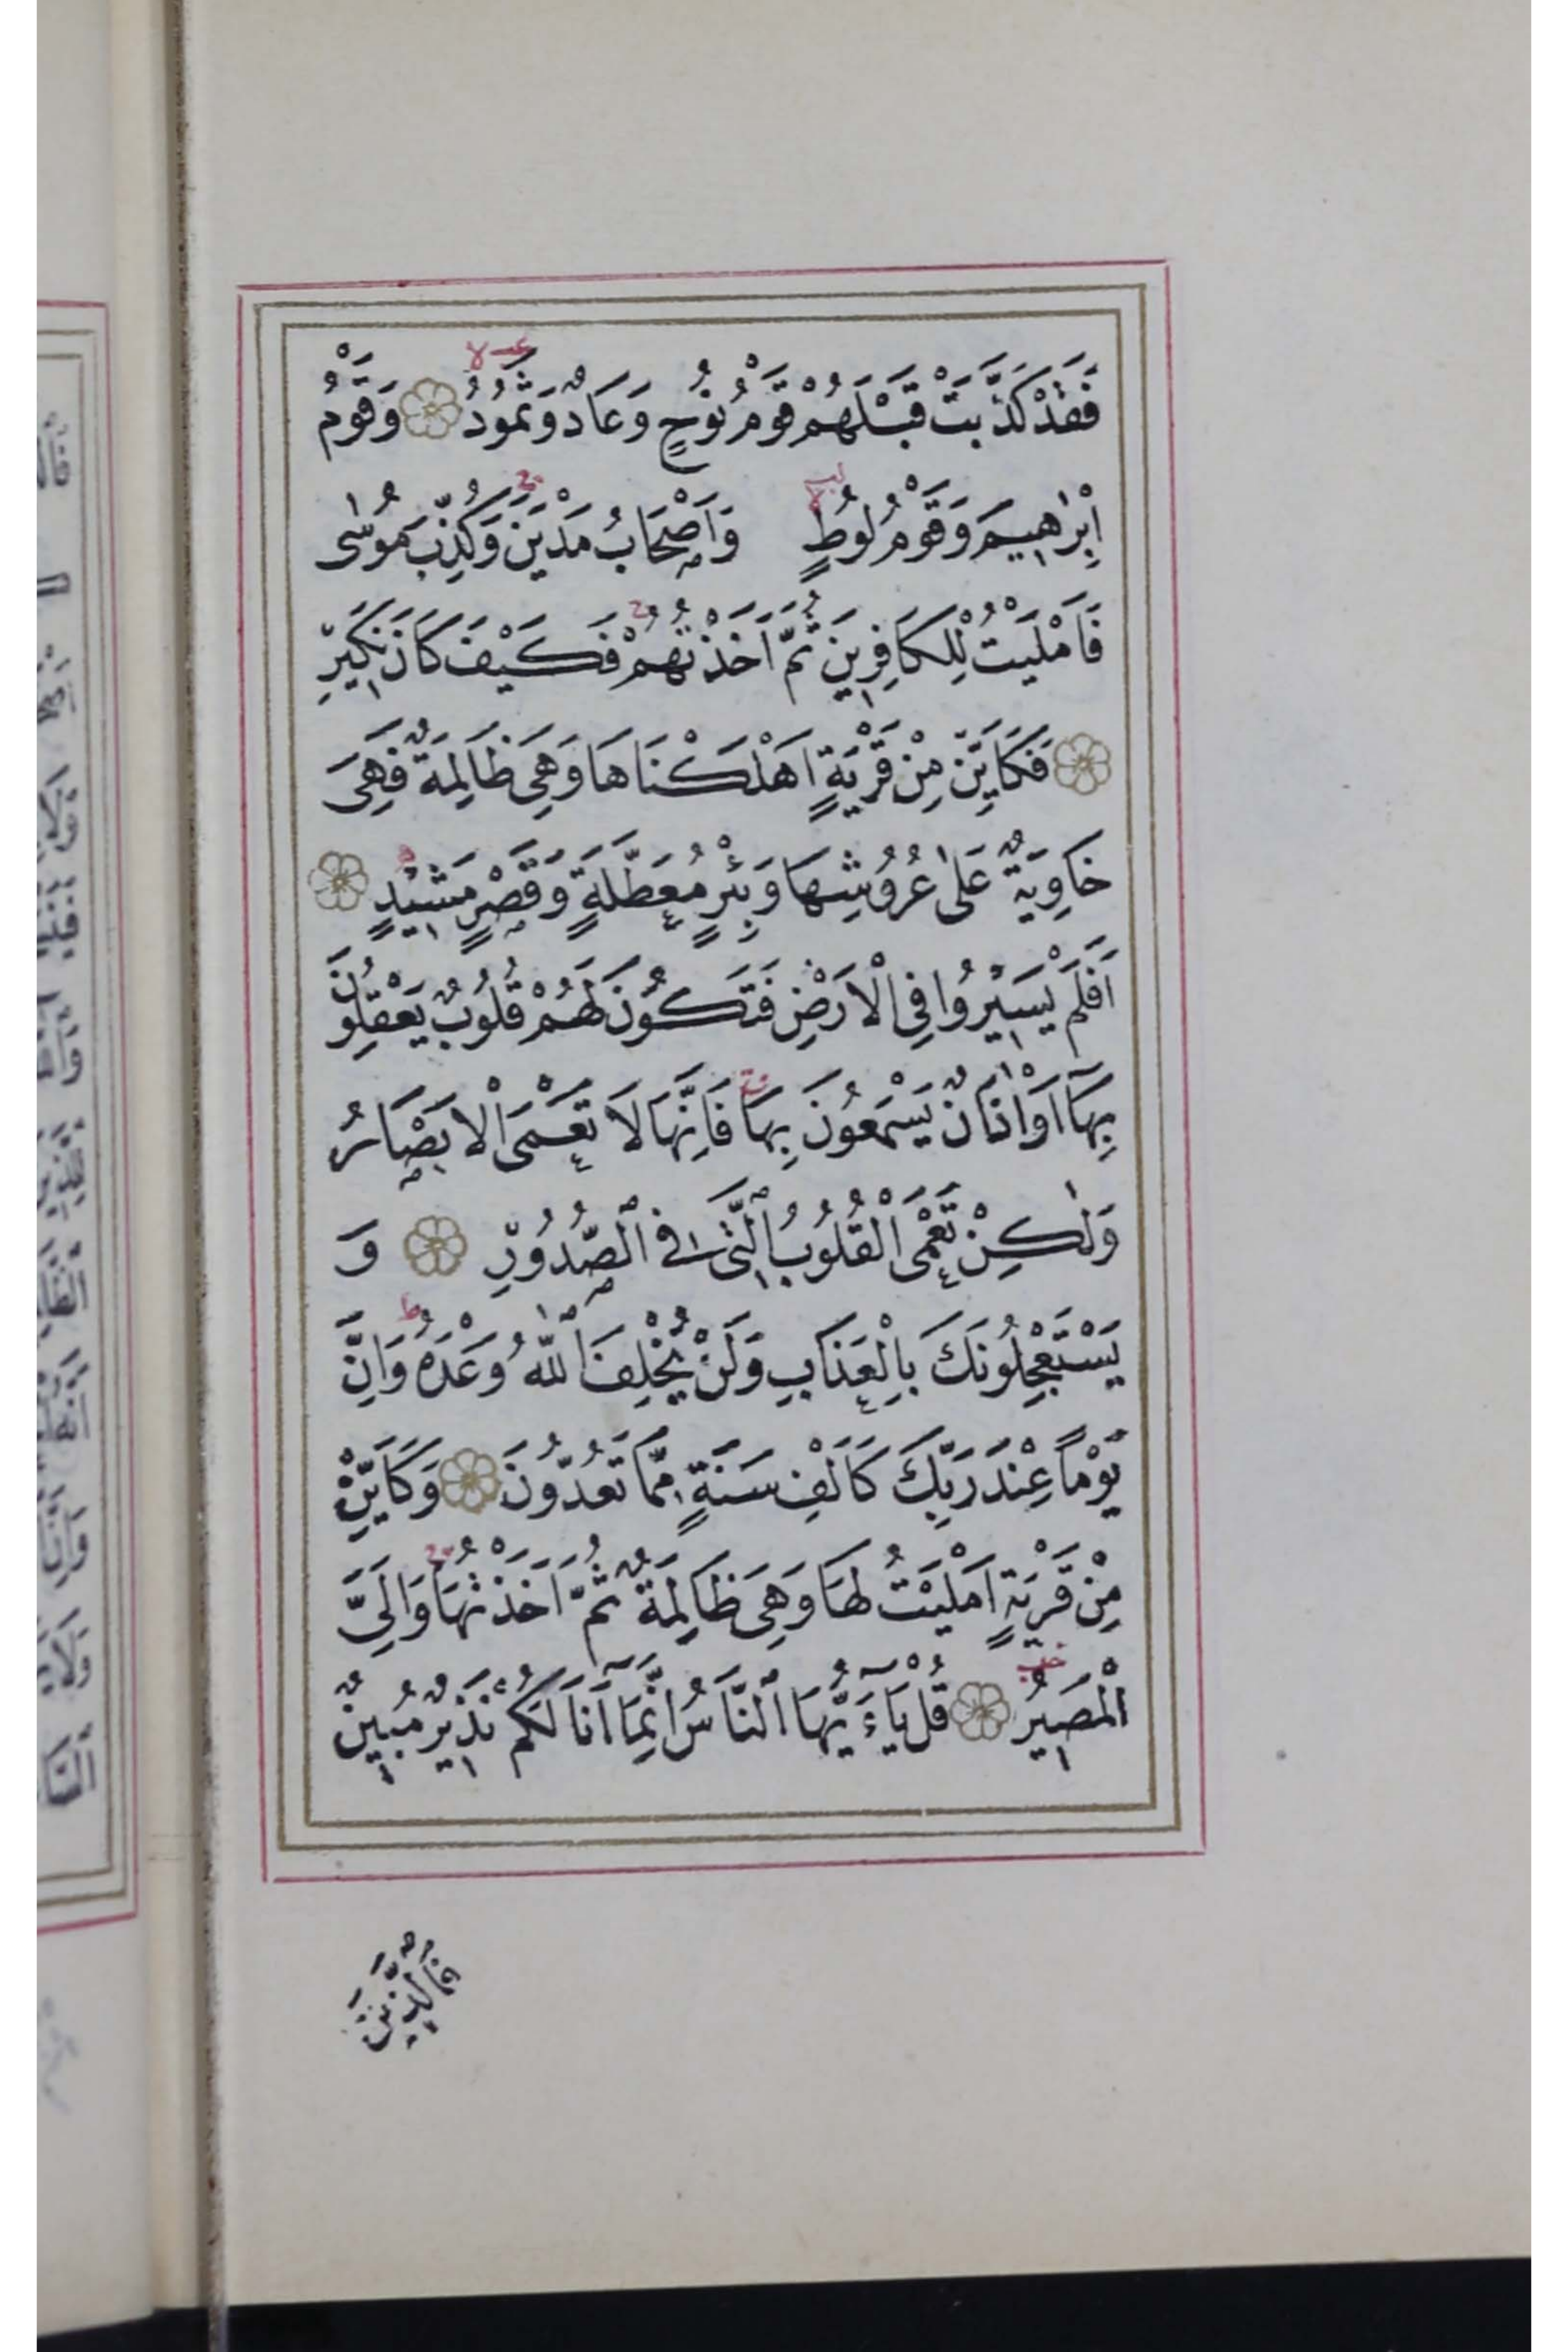 فَقَدْ كَذَّبَتْ قَبْلَهُمْ قَوْمُ نُوْحٍ وَعَادٌ وَثَمُوْدُ وَقَوْمُ
اِبْرٰهِيمَ وَقَوْمُ لُوطٍ وَاَصْحَابُ مَدْيَنَ وَكُذِّبَ مُوسٰى
فَاَمْلَيْتُ لِلْكَافِرِينَ ثُمَّ اَخَذْتُهُمْ فَكَيْفَ كَانَ نَكِيرِ
فَكَاَيِّنْ مِنْ قَرْيَةٍ اَهْلَكْنَاهَا وَهِىَ ظَالِمَةٌ فَهِىَ
خَاوِيَةٌ عَلٰى عُرُوُشِهَا وَبِئْرٍ مُعَطَّلَةٍ وَقَصْرٍ مَشِيْدٍ
اَفَلَمْ يَسِيْرُوا فِى الْاَرَضِ فَتَكُوْنَ لَهُمْ قُلُوْبٌ يَعْقِلُوْنَ
بِهَآ اَوْ اٰذَانٌ يَسْمَعُوْنَ بِهَا فَاِنَّهَا لَا تَعْمَى الْاَبْصَارُ
وَلٰكِنْ تَعْمَى الْقُلُوْبُ الَّتِى فِى الصُّدُوْرِ وَ
يَسْتَعْجِلُوْنَكَ بِالْعَذَابِ وَلَنْ يُخْلِفَ اللّٰهُ وَعْدَهُ وَاِنَّ
يَوْماً عِنْدَ رَبِّكَ كَاَلْفِ سَنَةٍ مِمَّا تَعُدُّوْنَ وَكَاَيِّنْ
مِنْ قَرْيَةٍ اَمْلَيْتُ لَهَا وَهِىَ ظَالِمَةٌ ثُمَّ اَخَذْتُهَا وَاِلَىَّ
الْمَصِيرُ قُلْ يَاءَيُّهَا النَّاسُ اِنَّمَآ اَنَا لَكُمْ نَذِيْرٌ مُبِيْنٌ
فَالَّذِيْنَ